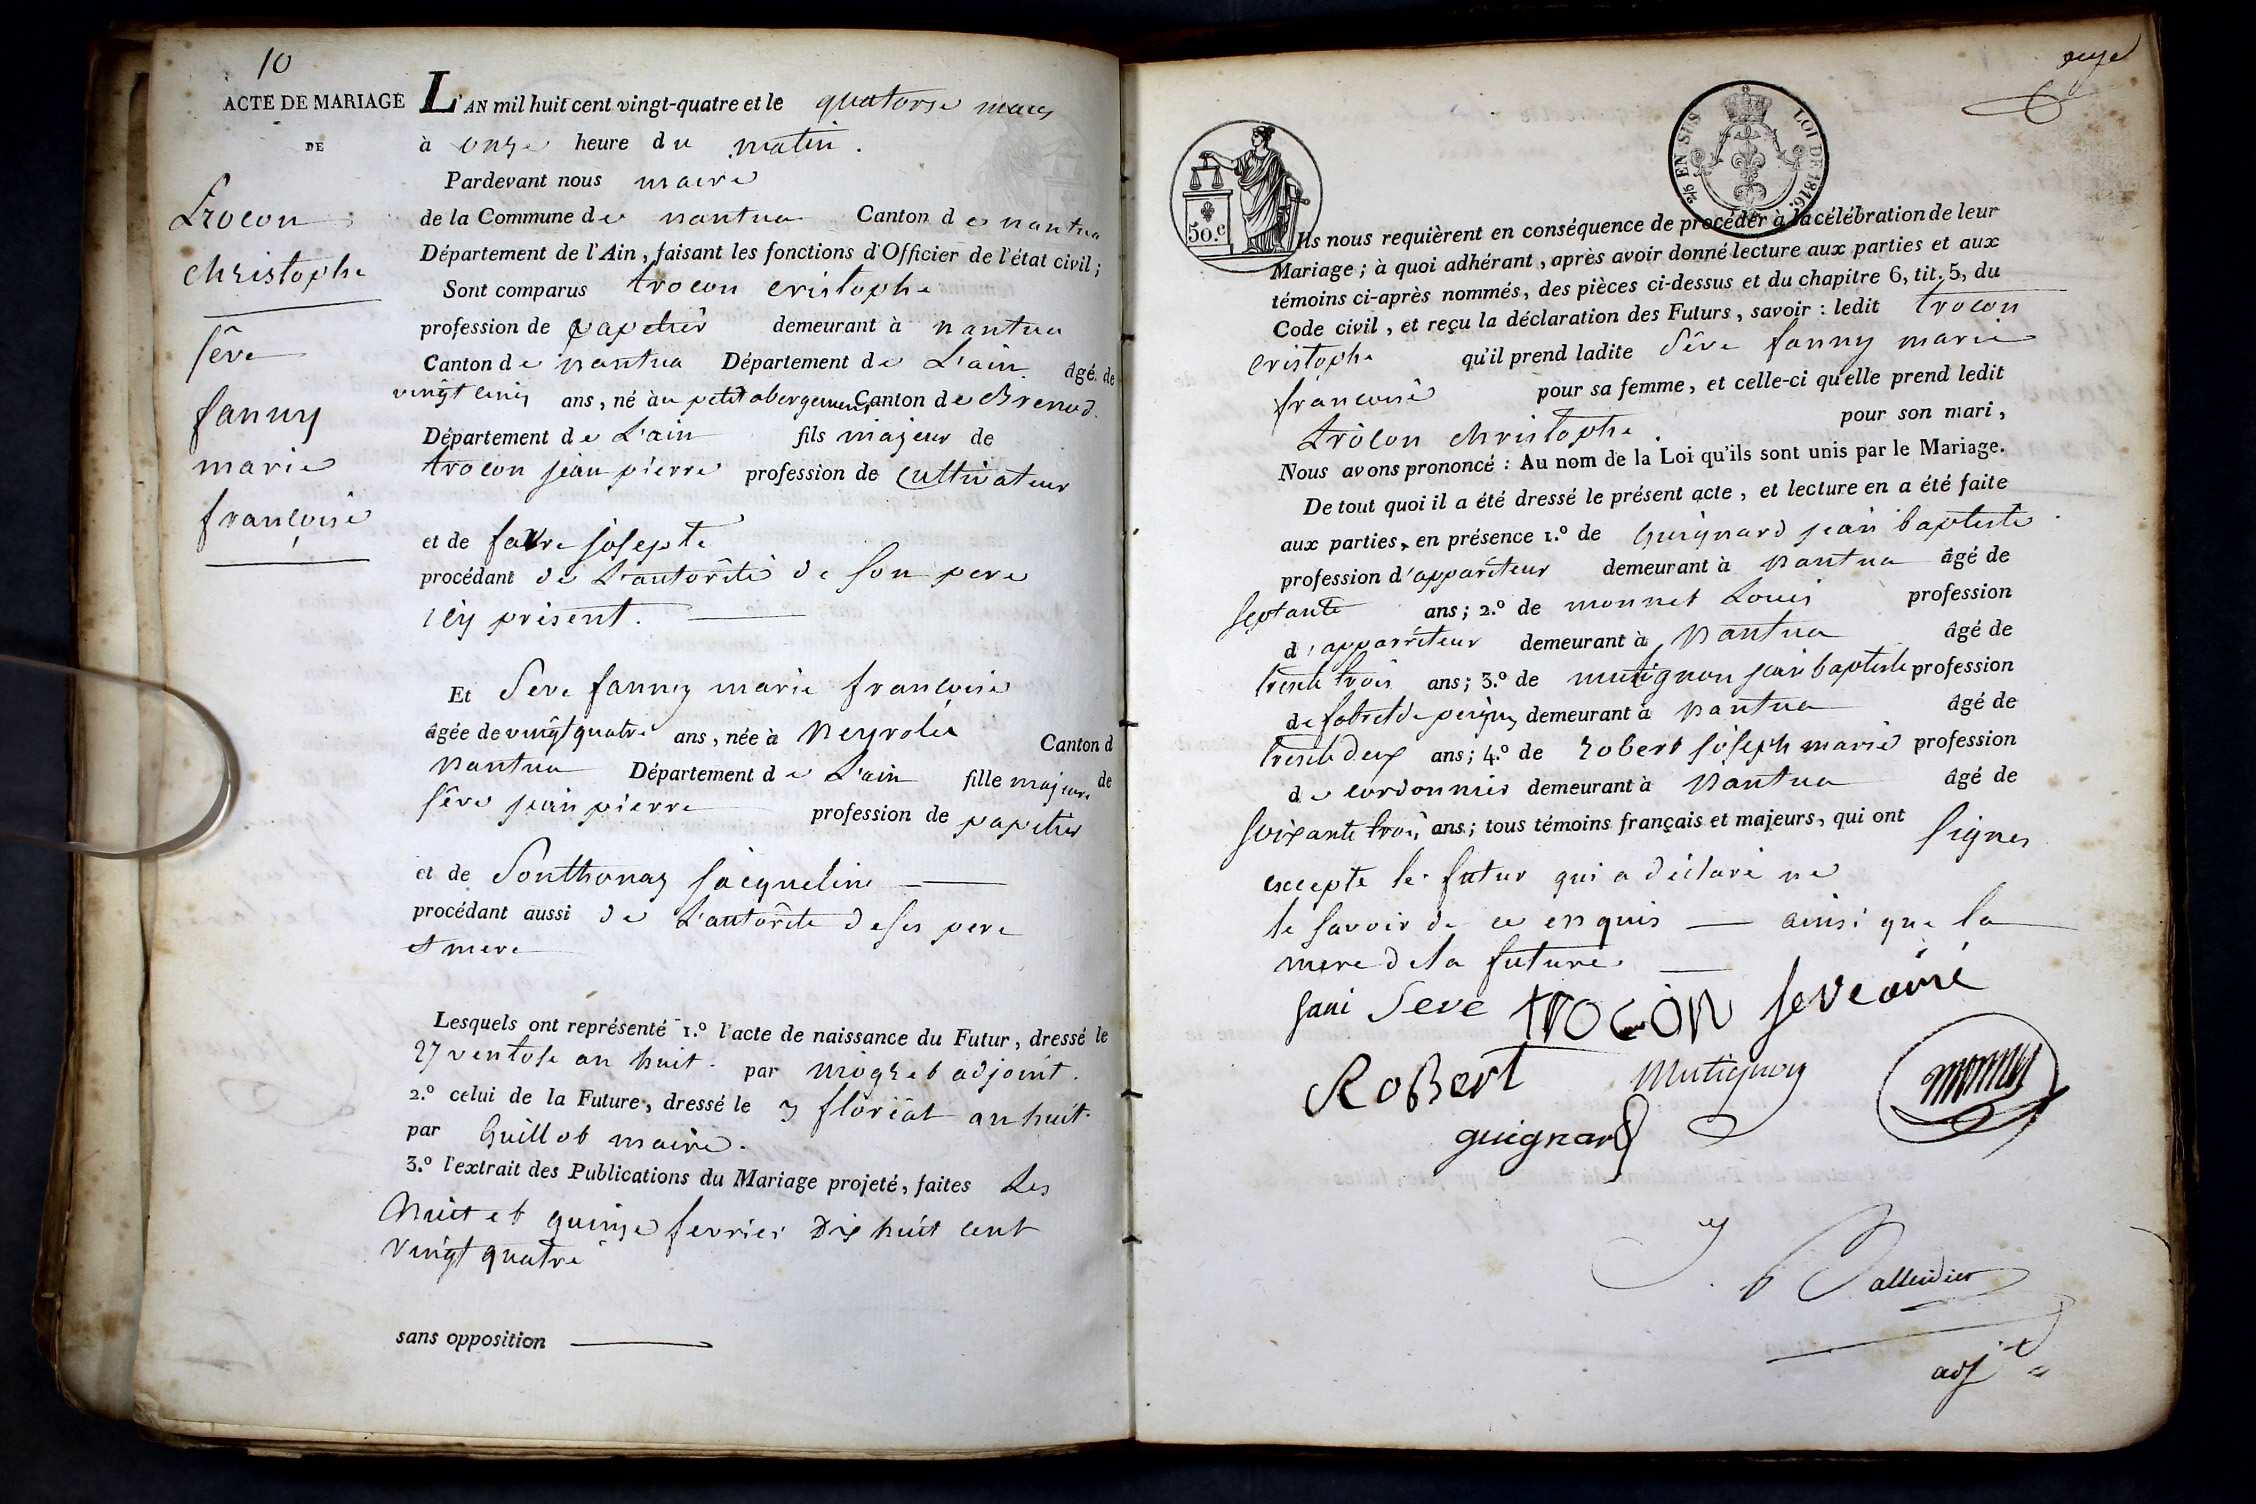 10
ACTE DE MARIAGE
DE
Trocon
christophe
sêve
fanny
marie
françoise
L'AN mil huit cent vingt-quatre et le quatorse mars
à onze heure du matin.
Pardevant nous maire
de la Commune de nantua Canton de nantua
Département de l'Ain, faisant les fonctions d'Officier de l'état civil;
Sont comparus trocon cristophe
profession de papetier demeurant à nantua
Canton de nantua Département de L'ain âgé de
vingt cinq ans, né au petit abergement Canton de Brenod.
Département de L'ain fils majeur de
trocon jean pierre profession de cultivateur
et de favre josepte
procédant de L'autorité de son pere
icy présent.
Et Seve fanny marie francoise
âgée de vingt quatre ans, née à neyrolle Canton d
nantua Département de L'ain fille majeure de
sêve jean pierre profession de papetier
et de Sonthonax jacqueline
procédant aussi de L'autorité de ses pere
et mere
Lesquels ont représenté 1.º l'acte de naissance du Futur, dressé le
27 ventose an huit. par adjoint.
2.º celui de la Future, dressé le 3 floréal an huit.
par Guillot maire.
3.º l'extrait des Publications du Mariage projeté, faites Les
huit et quinze fevrier Dix huit cent
vingt quatre
sans opposition
onze
50.c
2/5 EN SUS LOI DE 1816.
Ils nous requièrent en conséquence de procéder à la célébration de leur
Mariage; à quoi adhérant, après avoir donné lecture aux parties et aux
témoins ci-après nommés, des pièces ci-dessus et du chapitre 6, tit. 5, du
Code civil, et reçu la déclaration des Futurs, savoir: ledit trocon
cristophe qu'il prend ladite Sêve fanny marie
francoise pour sa femme, et celle-ci qu'elle prend ledit
trocon christophe. pour son mari,
Nous avons prononcé: Au nom de la Loi qu'ils sont unis par le Mariage.
De tout quoi il a été dressé le présent acte, et lecture en a été faite
aux parties, en présence 1.º de Guignard jean baptiste
profession d'appariteur demeurant à nantua âgé de
septante ans; 2.º de monnet Louis profession
d'apparriteur demeurant à nantua âgé de
trente trois ans; 3.º de mutignon jean baptiste profession
de demeurant à nantua âgé de
trente deux ans; 4.º de robert joseph marie profession
de cordonnier demeurant à nantua âgé de
soixante trois ans; tous témoins français et majeurs, qui ont signes
excepte le futur qui a déclaré ne
le savoir de ce enquis ainsi que la
mere de la future.
fani Seve trocon seve ainé
Robert Mutignon monnet
guignard
adj.t